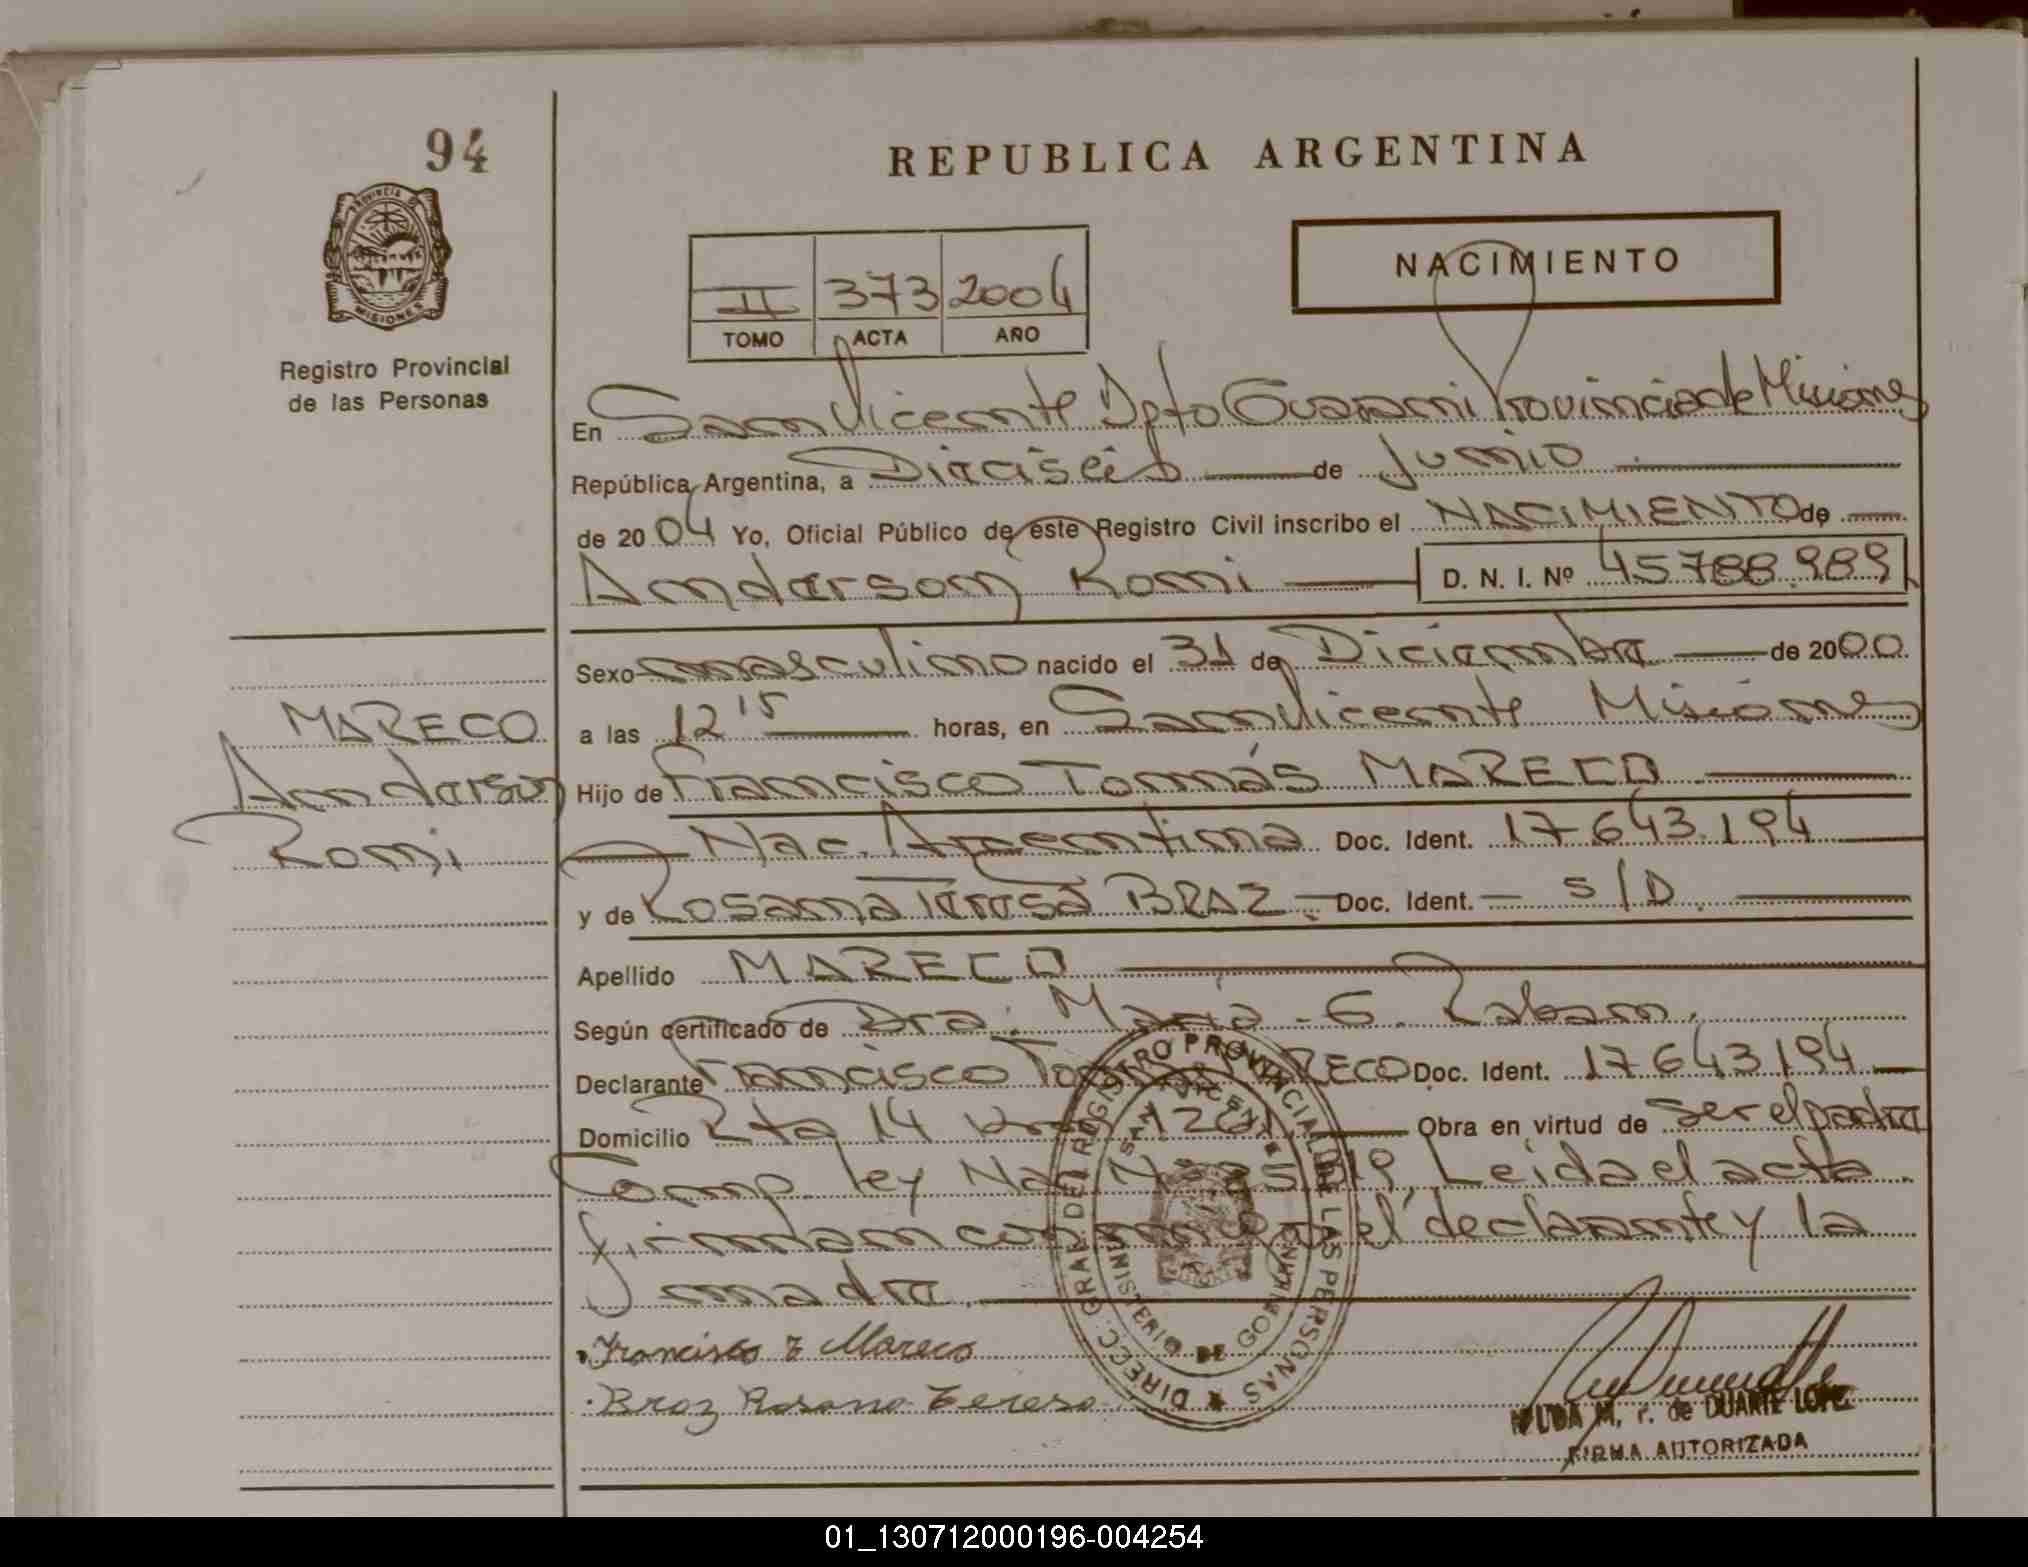 94
REPUBLICA ARGENTINA
PROVINCIA DE
MISIONES
Registro Provincial
de las Personas
II 373 2004
TOMO ACTA AÑO
NACIMIENTO
En San Vicente Dpto Guarani Provincia de Misiones
República Argentina, a Dieciseis de Junio
de 2004 Yo, Oficial Público de este Registro Civil inscribo el NACIMIENTO de
Anderson Romi D. N. I. Nº 45788.989
Sexo masculino nacido el 31 de Diciembre de 2000
a las 12 15 horas, en San Vicente Misiones
Hijo de Francisco Tomás MARECO
Nac. Argentina Doc. Ident. 17.643.194
y de Rosana Teresa BRAZ Doc. Ident. S/D.
Apellido MARECO
Según certificado de Dra. Maria G. Raban.
Declarante Francisco RECO Doc. Ident. 17643194
Domicilio Rta 14 Km 1281 Obra en virtud de ser el padre
Comp. ley Nac Nº 25 819, Leida el acta
firman conmigo el declarante y la
madre.
MARECO
Anderson
Romi
Francisco T Mareco
Braz Rosana Teresa
DIRECC. GRAL. DEL REGISTRO PROVINCIAL DE LAS PERSONAS
SAN VICENTE
MINISTERIO DE GOBIERNO
HILDA M. r. de DUARTE LOPEZ
FIRMA AUTORIZADA
01_130712000196-004254